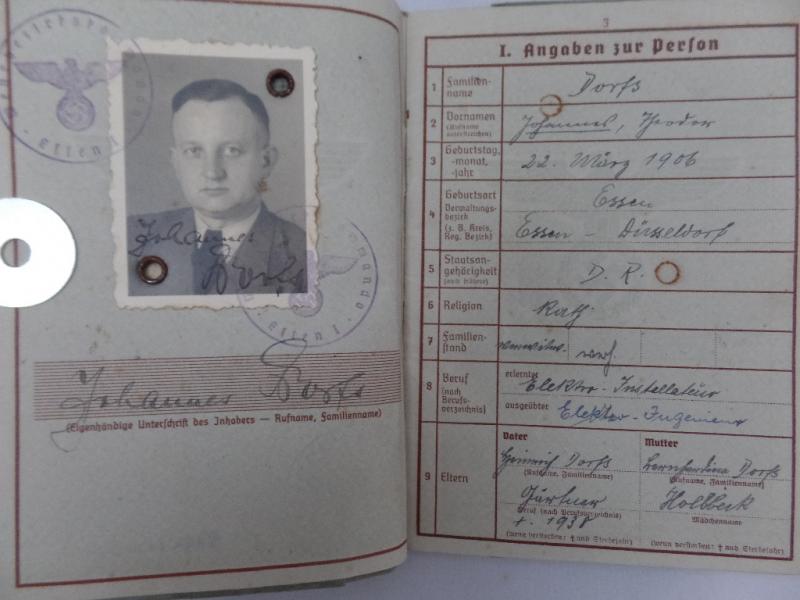 Essen 1
Johannes
Dorfs
Essen 1
Johannes Dorfs
(Eigenhändige Unterschrift des Inhabers — Rufname, Familienname)
3
I. Angaben zur Person
1 Familienname Dorfs
2 Vornamen (Rufname unterstreichen) Johannes, Theodor
3 Geburtstag, -monat, -jahr 22. März 1906
4 Geburtsort Essen
Verwaltungsbezirk (z. B. Kreis, Reg. Bezirk) Essen - Düsseldorf
5 Staatsangehörigkeit (auch frühere) D. R.
6 Religion Kath.
7 Familienstand verh.
8 Beruf (nach Berufsverzeichnis) erlernter Elektro-Installateur
ausgeübter Elektro-Ingenieur
9 Eltern
Vater Mutter
Heinrich Dorfs Bernhardina Dorfs
(Rufname, Familienname) (Rufname, Familienname)
Gärtner Holbeck
Beruf (nach Berufsverzeichnis) Mädchenname
†. 1938
(wenn verstorben: † und Sterbejahr) (wenn verstorben: † und Sterbejahr)